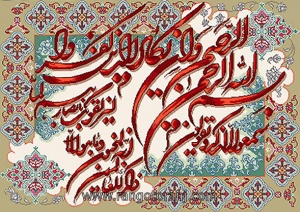 بسم الله الرحمن الرحیم
وان یکاد الذین کفروا
لیزلقونک بابصارهم
لما سمعوا الذکر ویقولون
انه لمجنون وما هو الا
ذکر للعالمین